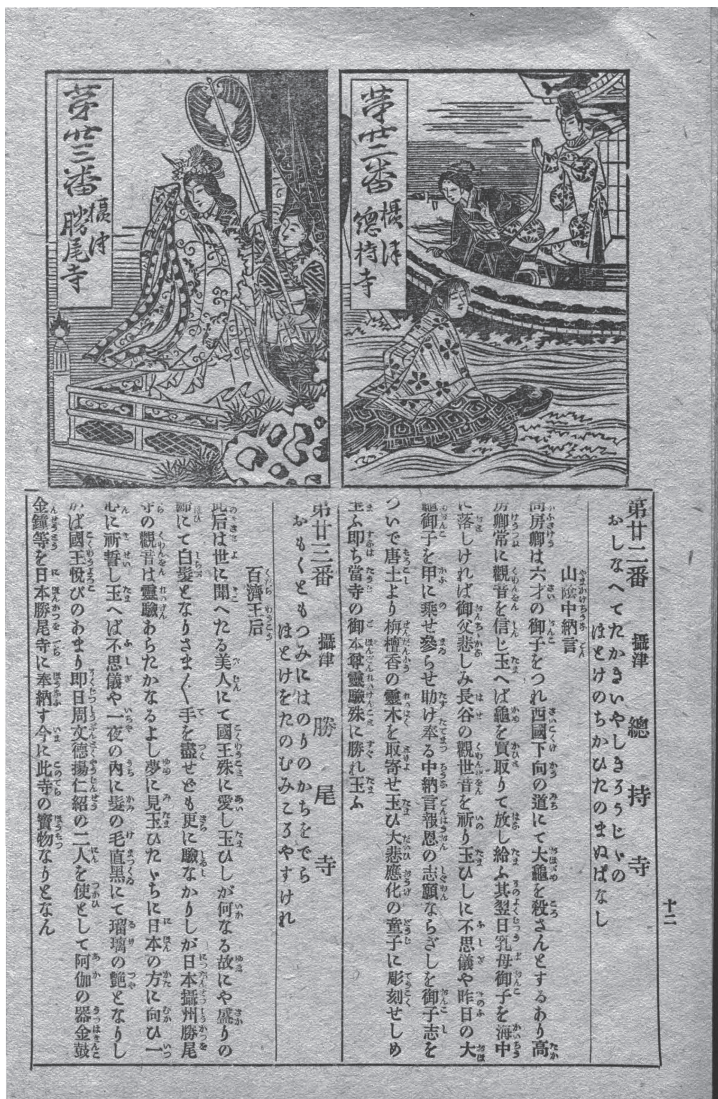 十二
第廿二番
攝津
總持寺
第廿三番
攝津
勝尾寺
第廿二番 攝津 總持寺
おしなへてたかきいやしきそうじゝの
ほとけのちかひたのまぬはなし
山陰中納言
高房卿は六才の御子をつれ西國下向の道にて大龜を殺さんとするあり高
房卿常に觀音を信じ玉へば龜を買取りて放し給ふ其翌日乳母御子を海中
に落しければ御父悲しみ長谷の觀世音を祈り玉ひしに不思儀や昨日の大
龜御子を甲に乘せ參らせ助け奉る中納言報恩の志願ならざしを御子志を
ついで唐土より栴檀香の靈木を取寄せ玉ひ大悲應化の童子に彫刻せしめ
玉ふ即ち當寺の御本尊靈驗殊に勝れ玉ふ
第廿三番 攝津 勝尾寺
おもくともつみにはのりのかちをでら
ほとけをたのむみこそやすけれ
百濟王后
此后は世に聞へたる美人にて國王殊に愛し玉ひしが何なる故にや盛りの
齢にて白髮となりさま〴〵手を盡せども更に驗なかりしが日本攝州勝尾
寺の觀音は靈驗あらたかなるよし夢に見玉ひたゞちに日本の方に向ひ一
心に祈誓し玉へば不思儀や一夜の內に髮の毛直黑にて瑠璃の艶となりし
かば國王悅びのあまり即日周文德揚仁紹の二人を使として阿伽の器金鼓
金鐘等を日本勝尾寺に奉納す今に此寺の寶物なりとなん